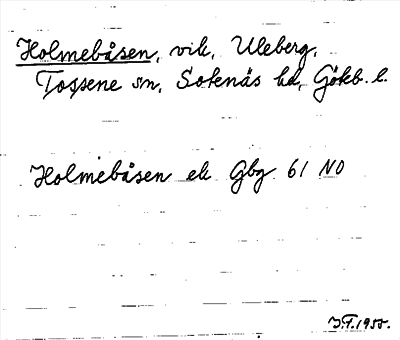 Holmebåsen, vik, Uleberg,
Tossene sn, Sotenäs hd, Göteb. l.
Holmebåsen ek Gbg 61 NO